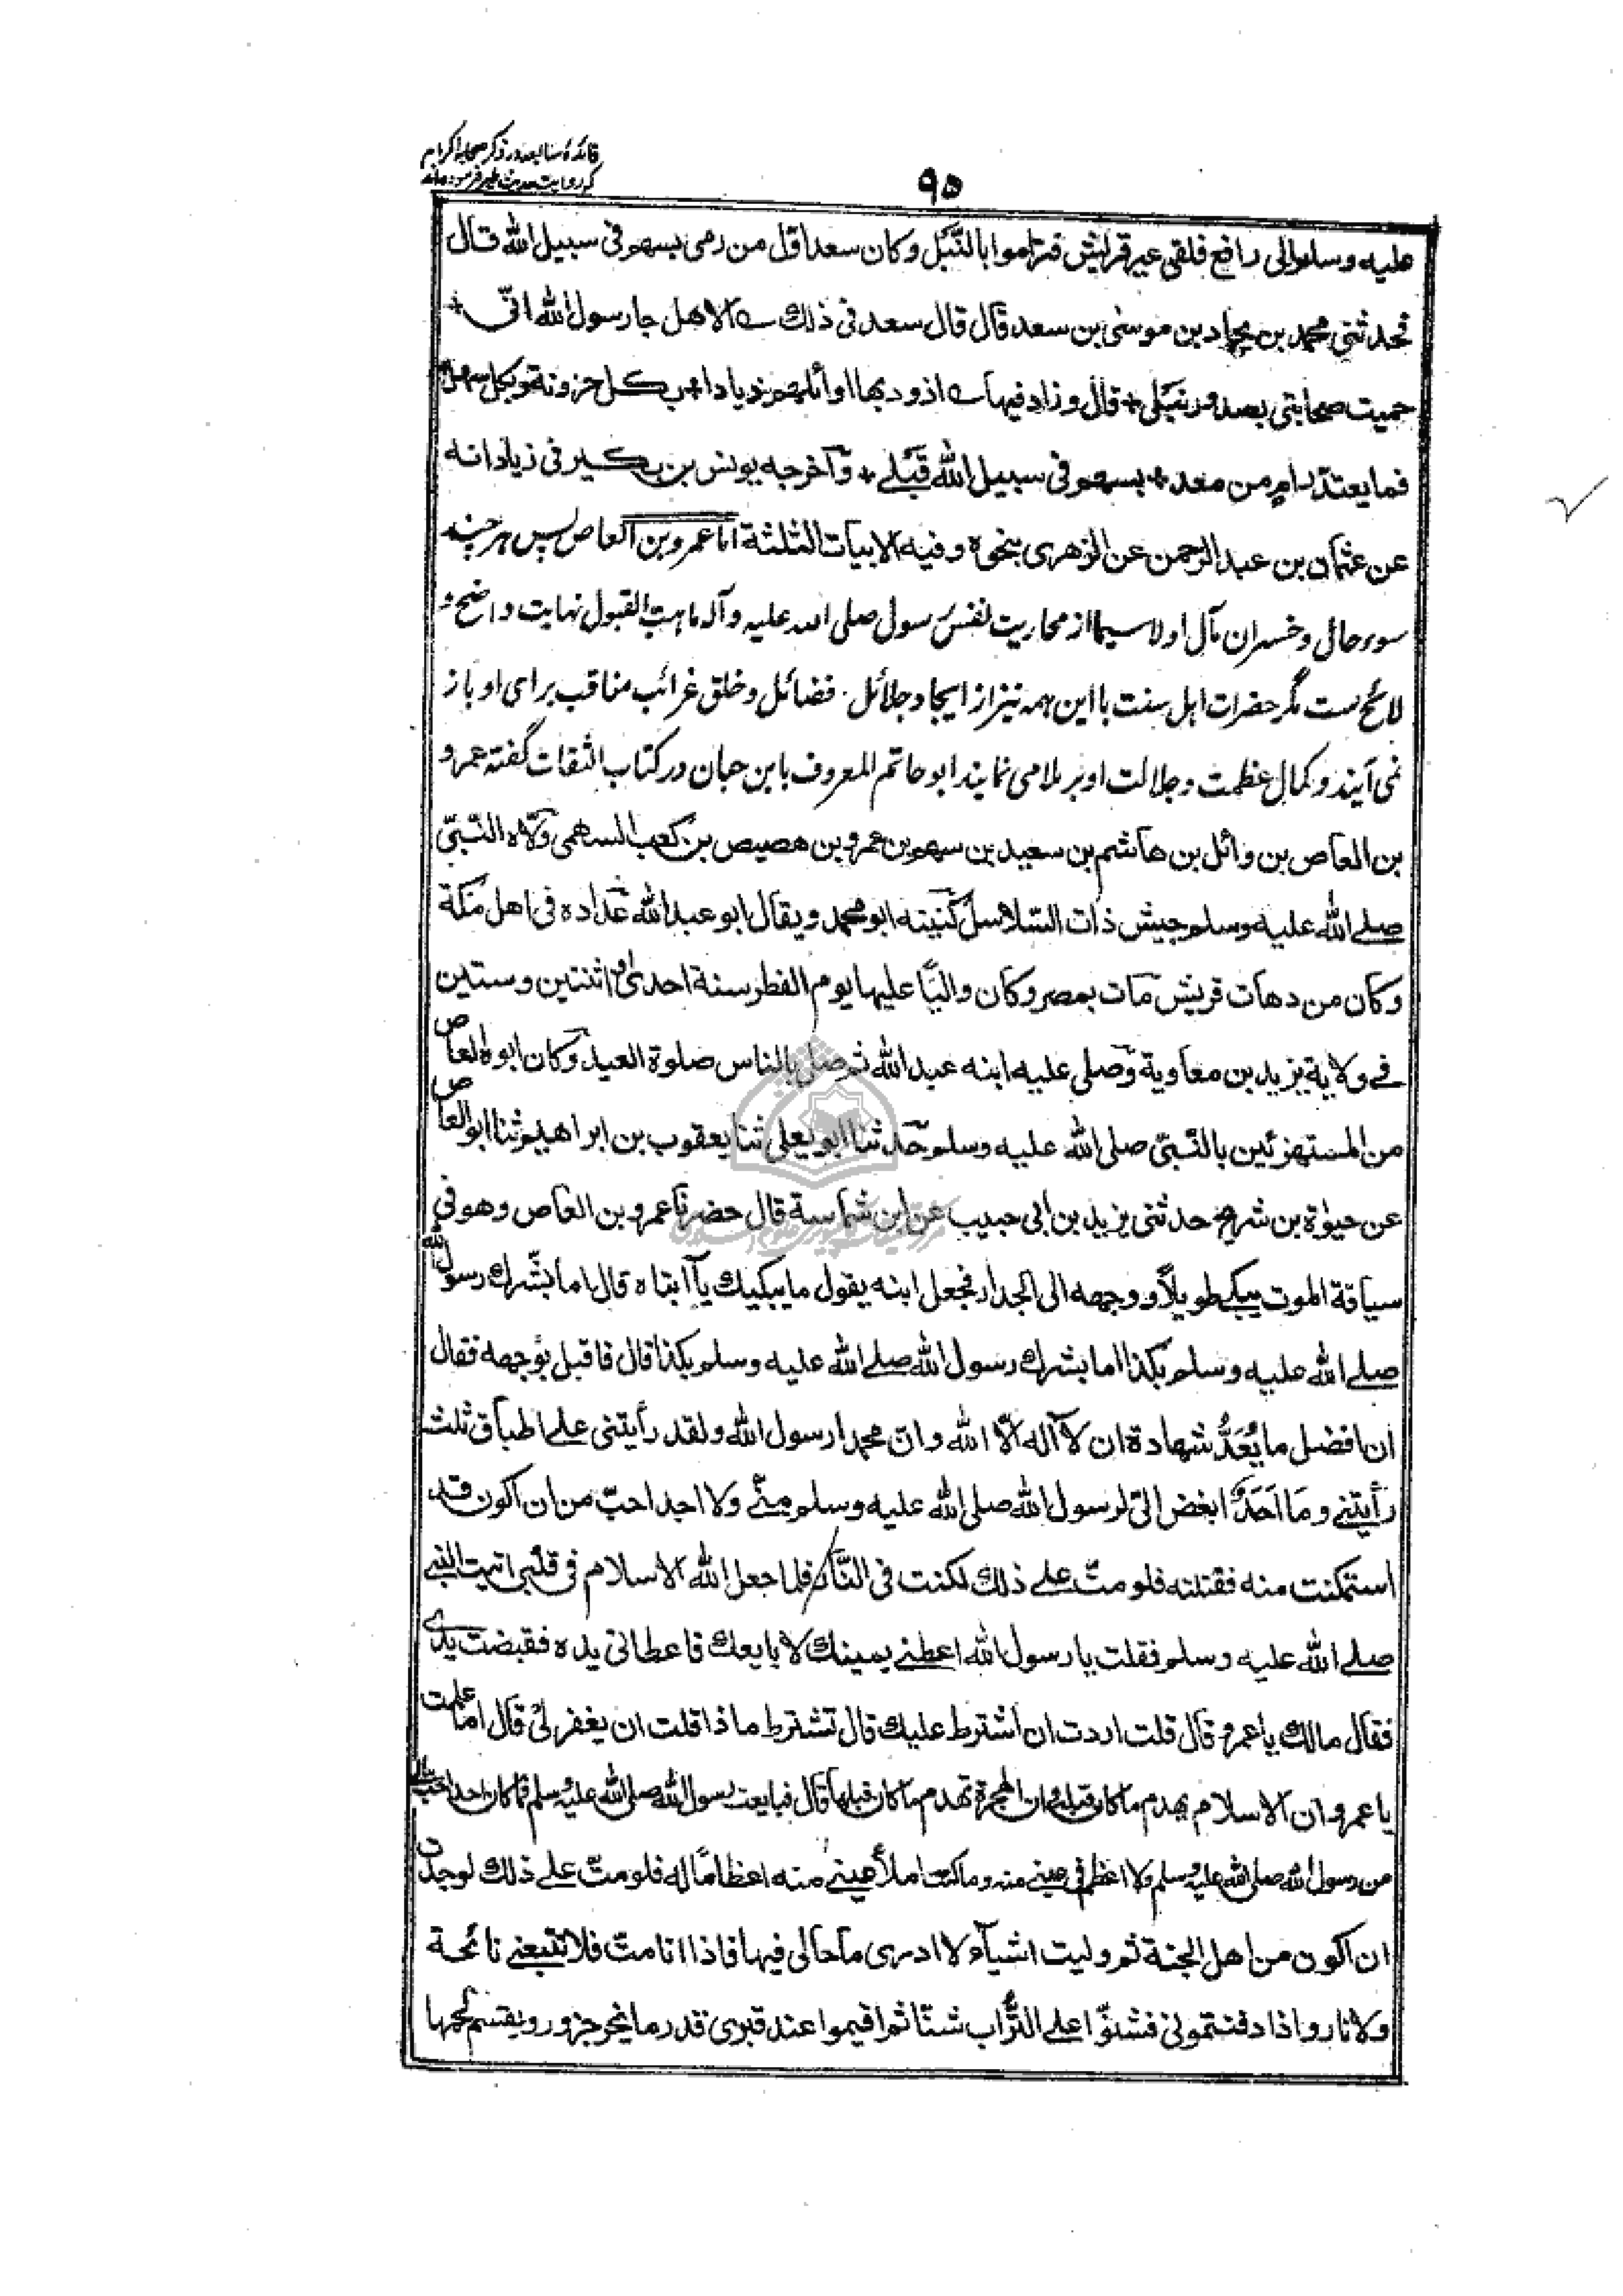 فائدهٔ سابعه در ذکر صحابهٔ کرام
که روایت حدیث طیر فرموده‌اند
۹۵
علیه وسلم الی رافع فلقی عیر قریش فتراموا بالنَّبَل وکان سعد اوّل من رمی بسهم فی سبیل الله قال
فحدثنی محمد بن بجاد بن موسٰی بن سعد قال قال سعد فی ذلك ؎ الا هل جا رسول الله انّی +
حمیت صحابتی بصدور نَبَلی + قال وزاد فیها ؎ اذود بها اوائلهم ذیادا + بکل حزونة وبکل سهل +
فما یعتدّ رام من معد + بسهم فی سبیل الله قَبَلے + وآخرجه یونس بن بکیر فی زیاداته
عن عثمان بن عبد الرحمن عن الزهری بنحوه وفیه الابیات الثلثة اما عمرو بن العاص پس هر چند
سوء حال و خسران مآل او لا سیما از محاربت نفس رسول صلی الله علیه وآله ما هبت القبول نهایت واضح و
لائح ست مگر حضرات اهل سنت با این همه نیز از ایجاد جلائل فضائل و خلق غرائب مناقب برای او باز
نمی آیند و کمال عظمت و جلالت او بر ملا می نمایند ابو حاتم المعروف بابن حبان در کتاب الثقات گفته عمرو
بن العاص بن وائل بن هاشم بن سعید بن سهم بن عمرو بن هصیص بن کعب السهمی ولّاه النّبیّ
صلے الله علیه وسلم جیش ذات السّلاسل کنیته ابو محمد ویقال ابو عبد الله عداده فی اهل مکة
وکان من دهات قریش مات بمصر وکان والیًا علیها یوم الفطر سنة احدی او اثنتین وستین
فے ولایة یزید بن معاویة وصلی علیه ابنه عبد الله ثم صلی بالناس صلوة العید وکان ابوه العاص
من المستهزئین بالنّبیّ صلی الله علیه وسلم حدثنا ابو یعلی ثنا یعقوب بن ابراهیم ثنا ابو العاص
عن حیٰوة بن شریح حدثنی یزید بن ابی حبیب عن ابن شماسة قال حضرنا عمرو بن العاص وهو فی
سیاقة الموت یبکے طویلاً ووجهه الی الجدار فجعل ابنه یقول ما یبکیك یآ ابتاه قال اما بشّرك رسول الله
صلے الله علیه وسلم بکذا اما بشرك رسول الله صلے الله علیه وسلم بکذا قال فاقبل بوجهه فقال
ان افضل ما یُعَدُّ شهادة ان لآ آله الّا الله وان محمدا رسول الله ولقد رأیتنی علے اطباق ثلث
رأیتنے وما احَدٌ ابغض الیّ لرسول الله صلی الله علیه وسلم منّے ولا اجد احبّ من ان اکون قد
استمکنت منه فقتلته فلو متّ علے ذلك لکنت فی النّار فلما جعل الله الاسلام فی قلبی اتیت النبے
صلے الله علیه وسلم فقلت یا رسول الله اعطنے یمینك لابایعك فاعطانی یده فقبضت یدے
فقال مالك یا عمرو قال قلت اردت ان اشترط علیك قال تشترط ماذا قلت ان یغفر لی قال اما علمت
یا عمرو ان الاسلام یهدم ما کان قبله وان الهجرة تهدم ما کان قبلها قال فبایعت رسول الله صلی الله علیه وسلم فما کان احد احب الی
من رسول الله صلی الله علیه وسلم ولا اعظم فی عینے منه وما کنت املأ عینے منه اعظاماً له فلو متّ علے ذلك لوجدت
ان اکون من اهل الجنة ثم ولیت اشیآء لا ادری ما حالی فیها فاذا انا متّ فلا تتبعنے نائحة
ولا نار واذا دفنتمونی فشنّوا علے التّراب شنّا ثم اقیموا عند قبری قدر ما ینحر جزور ویقسم لحمها